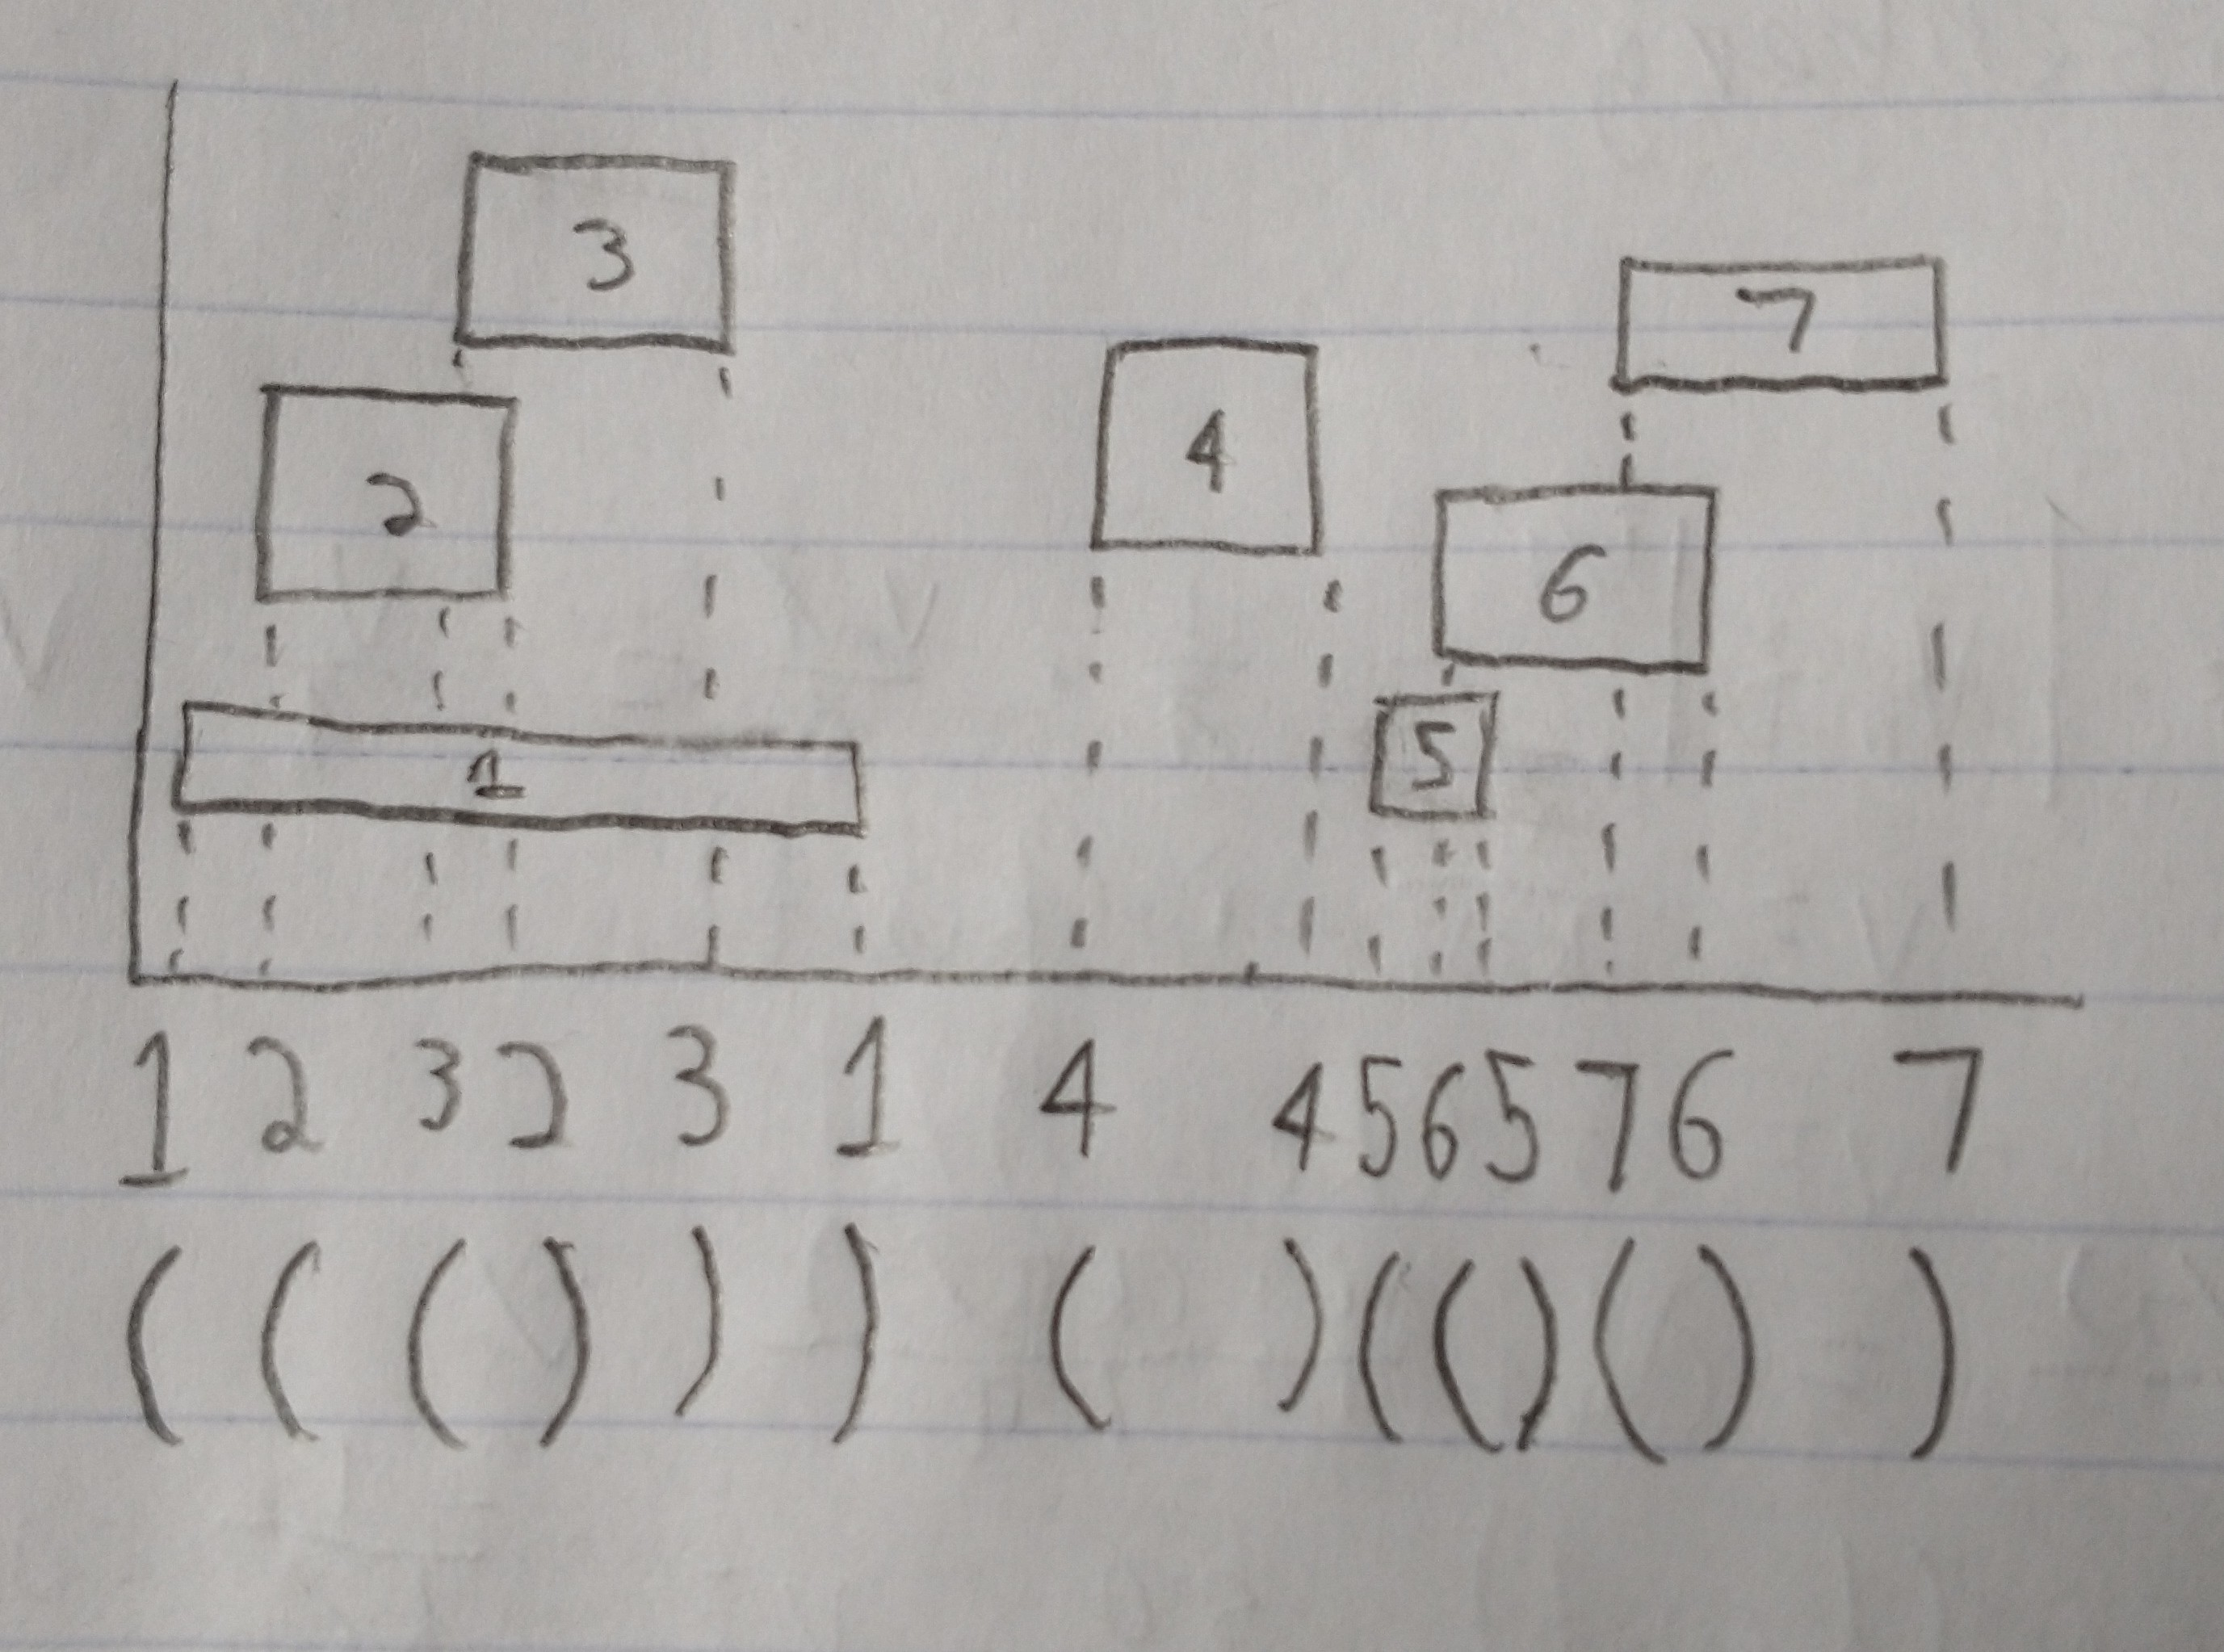 3
7
4
2
6
5
1
1 2 3 2 3 1 4 4 5 6 5 7 6 7
( ( ( ) ) ) ( ) ( ( ) ( ) )